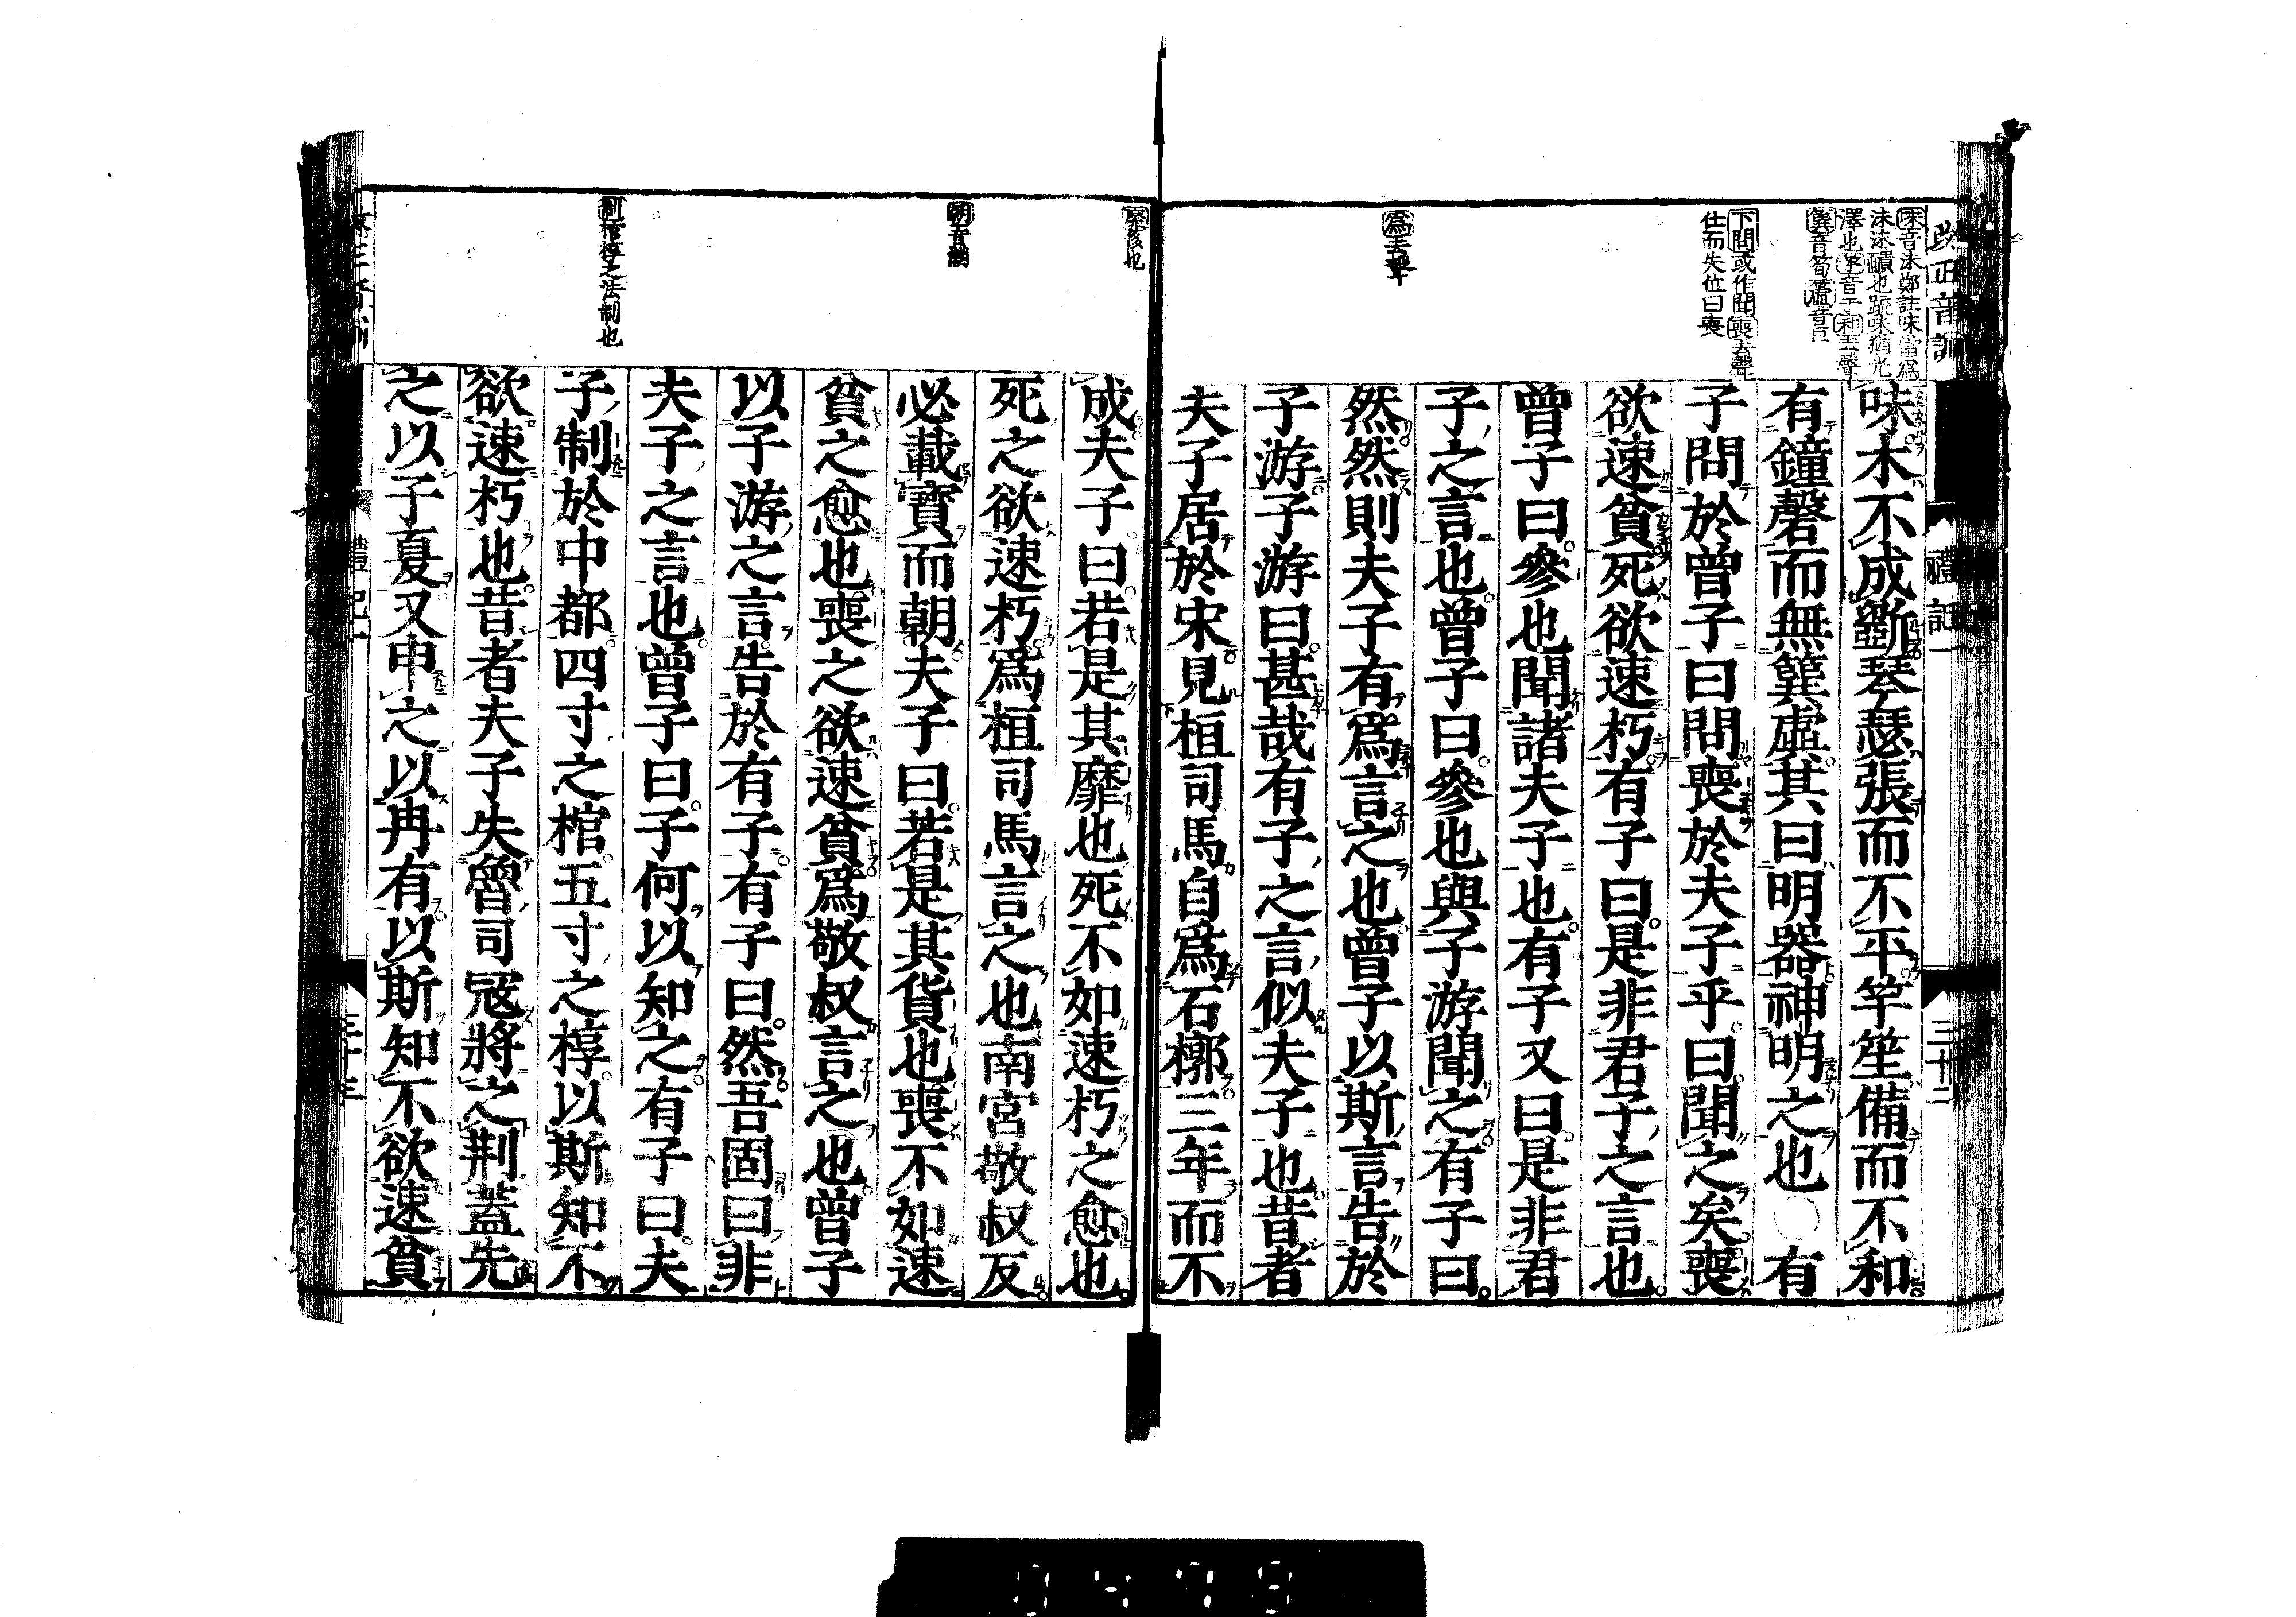 味音沬鄭註味當爲
沬沬靧也疏味猶光
澤也竽音于和去聲
簨音筍簴音巨
下問或作聞喪去聲
仕而失位曰喪
爲去聲
味木不成斲琴瑟張而不平竽笙備而不和
有鐘磬而無簨虡其曰明器神明之也○有
子問於曾子曰問喪於夫子乎曰聞之矣喪
欲速貧死欲速朽有子曰是非君子之言也
曾子曰參也聞諸夫子也有子又曰是非君
子之言也曾子曰參也與子游聞之有子曰
然然則夫子有爲言之也曾子以斯言告於
子游子游曰甚哉有子之言似夫子也昔者
夫子居於宋見桓司馬自爲石槨三年而不
禮記一
三十二
靡侈也
朝音潮
制棺椁之法制也
成夫子曰若是其靡也死不如速朽之愈也
死之欲速朽爲桓司馬言之也南宮敬叔反
必載寶而朝夫子曰若是其貨也喪不如速
貧之愈也喪之欲速貧爲敬叔言之也曾子
以子游之言告於有子有子曰然吾固曰非
夫子之言也曾子曰子何以知之有子曰夫
子制於中都四寸之棺五寸之椁以斯知不
欲速朽也昔者夫子失魯司寇將之荆蓋先
之以子夏又申之以冉有以斯知不欲速貧